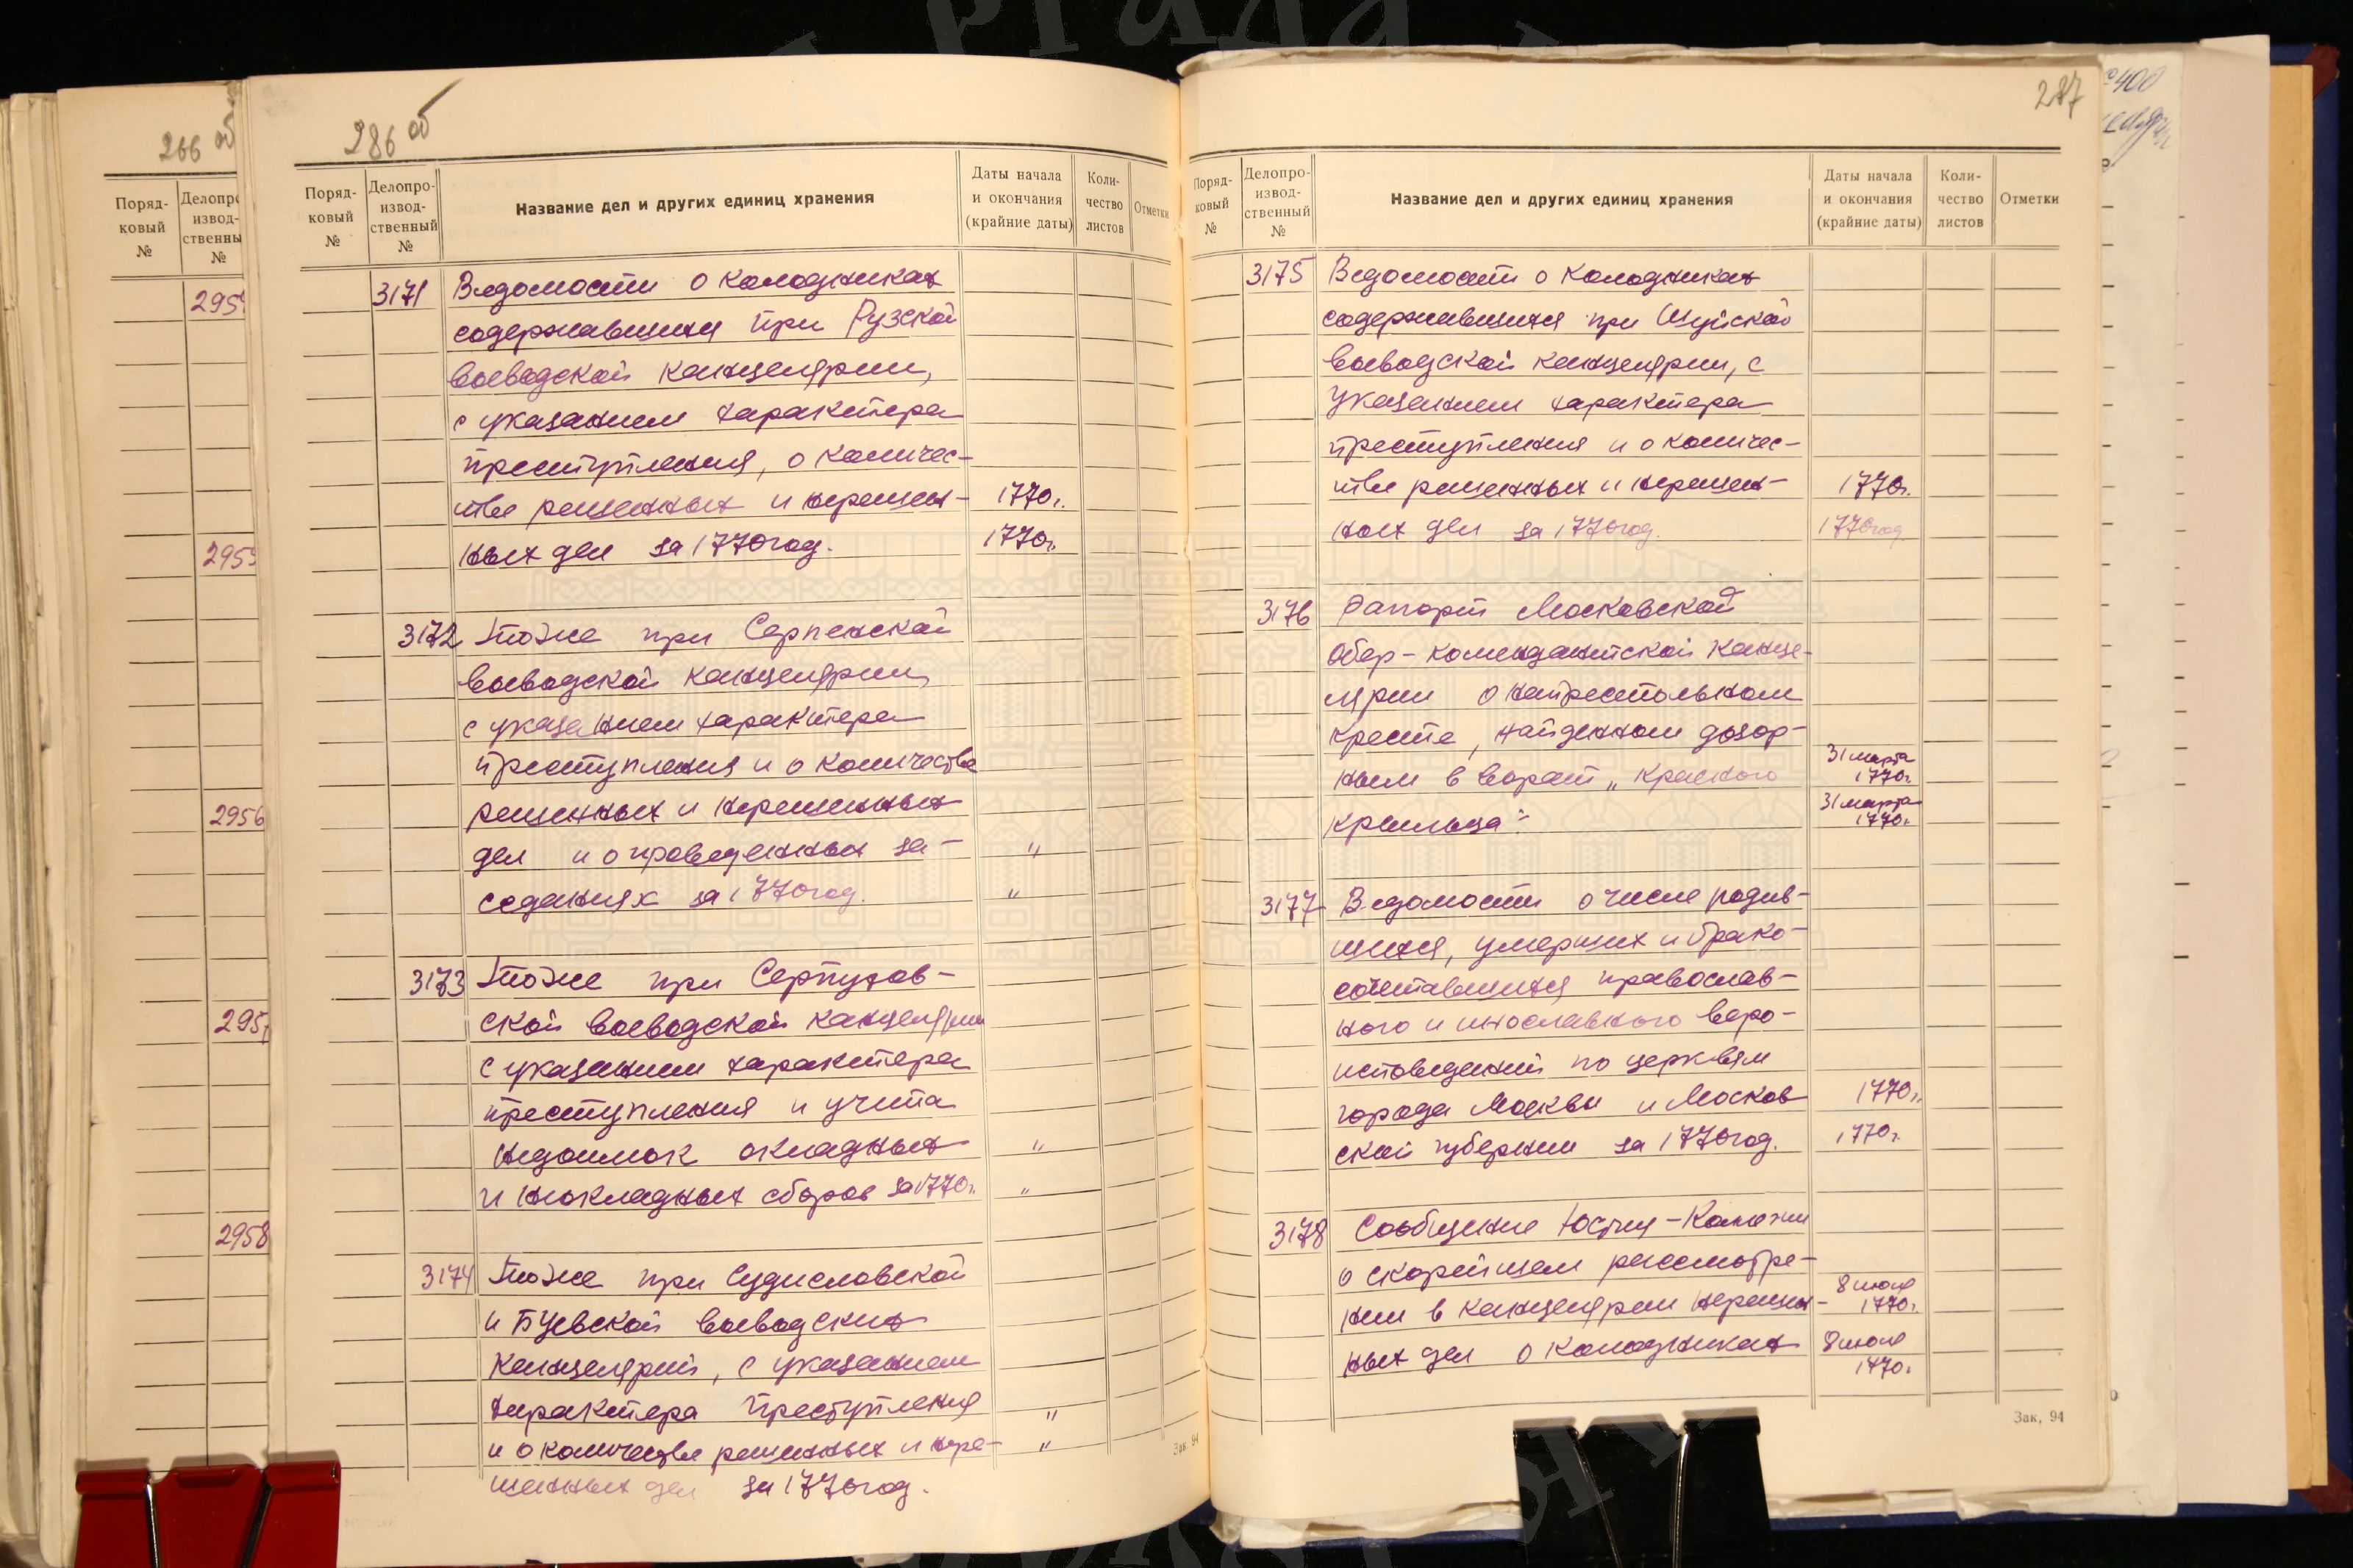 286 об
Поряд-
ковый
№
Делопро-
извод-
ственный
№
Название дел и других единиц хранения
Даты начала
и окончания
(крайние даты)
Коли-
чество
листов
Отметки
3171 Ведомости о колодниках
содержавшихся при Рузской
воеводской канцелярии,
с указанием характера
преступления, о количес-
тве решенных и нерешен- 1770г.
ных дел за 1770год. 1770г.
3172 То же при Серпейской
воеводской канцелярии,
с указанием характера
преступления и о количестве
решенных и нерешенных
дел и о проведенных за- "
седаниях за 1770год. "
3173 То же при Серпухов-
ской воеводской канцелярии
с указанием характера
преступления и учета
недоимок окладных "
и неокладных сборов за 1770г. "
3174 То же при Судиславской
и Буевской воеводских
канцелярий, с указанием
характера преступления "
и о количестве решенных и нере- "
шенных дел за 1770год.
Зак. 94
287
Поряд-
ковый
№
Делопро-
извод-
ственный
№
Название дел и других единиц хранения
Даты начала
и окончания
(крайние даты)
Коли-
чество
листов
Отметки
3175 Ведомости о колодниках
содержавшихся при Шуйской
воеводской канцелярии, с
указанием характера
преступления и о количес-
тве решенных и нерешен- 1770г.
ных дел за 1770год. 1770год
3176 Рапорт Московской
Обер-комендантской канце-
лярии о напрестольном
кресте, найденном дозор-
ным в ворот „Красного 31 марта 1770г.
крыльца". 31 марта 1770г.
3177 Ведомости о числе родив-
шихся, умерших и брако-
сочетавшихся православ-
ного и инославного веро-
исповеданий по церквям
города Москвы и Москов 1770г.
ской губернии за 1770год. 1770г.
3178 Сообщение Юстиц-Колегии
о скорейшем рассмотре-
нии в канцелярии нерешен- 8 июля 1770г.
ных дел о колодниках 8 июля 1770г.
Зак. 94
266 об
Поряд-
ковый
№
извод-
№
2956
2958